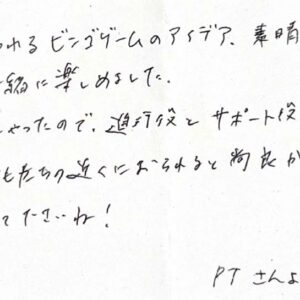 われるビンゴゲームのアイデア、素晴
緒に楽しめました。
ゃったので、進行役とサポート役
もたちの近くにおられると尚良か
てくださいね！
PTさんよ